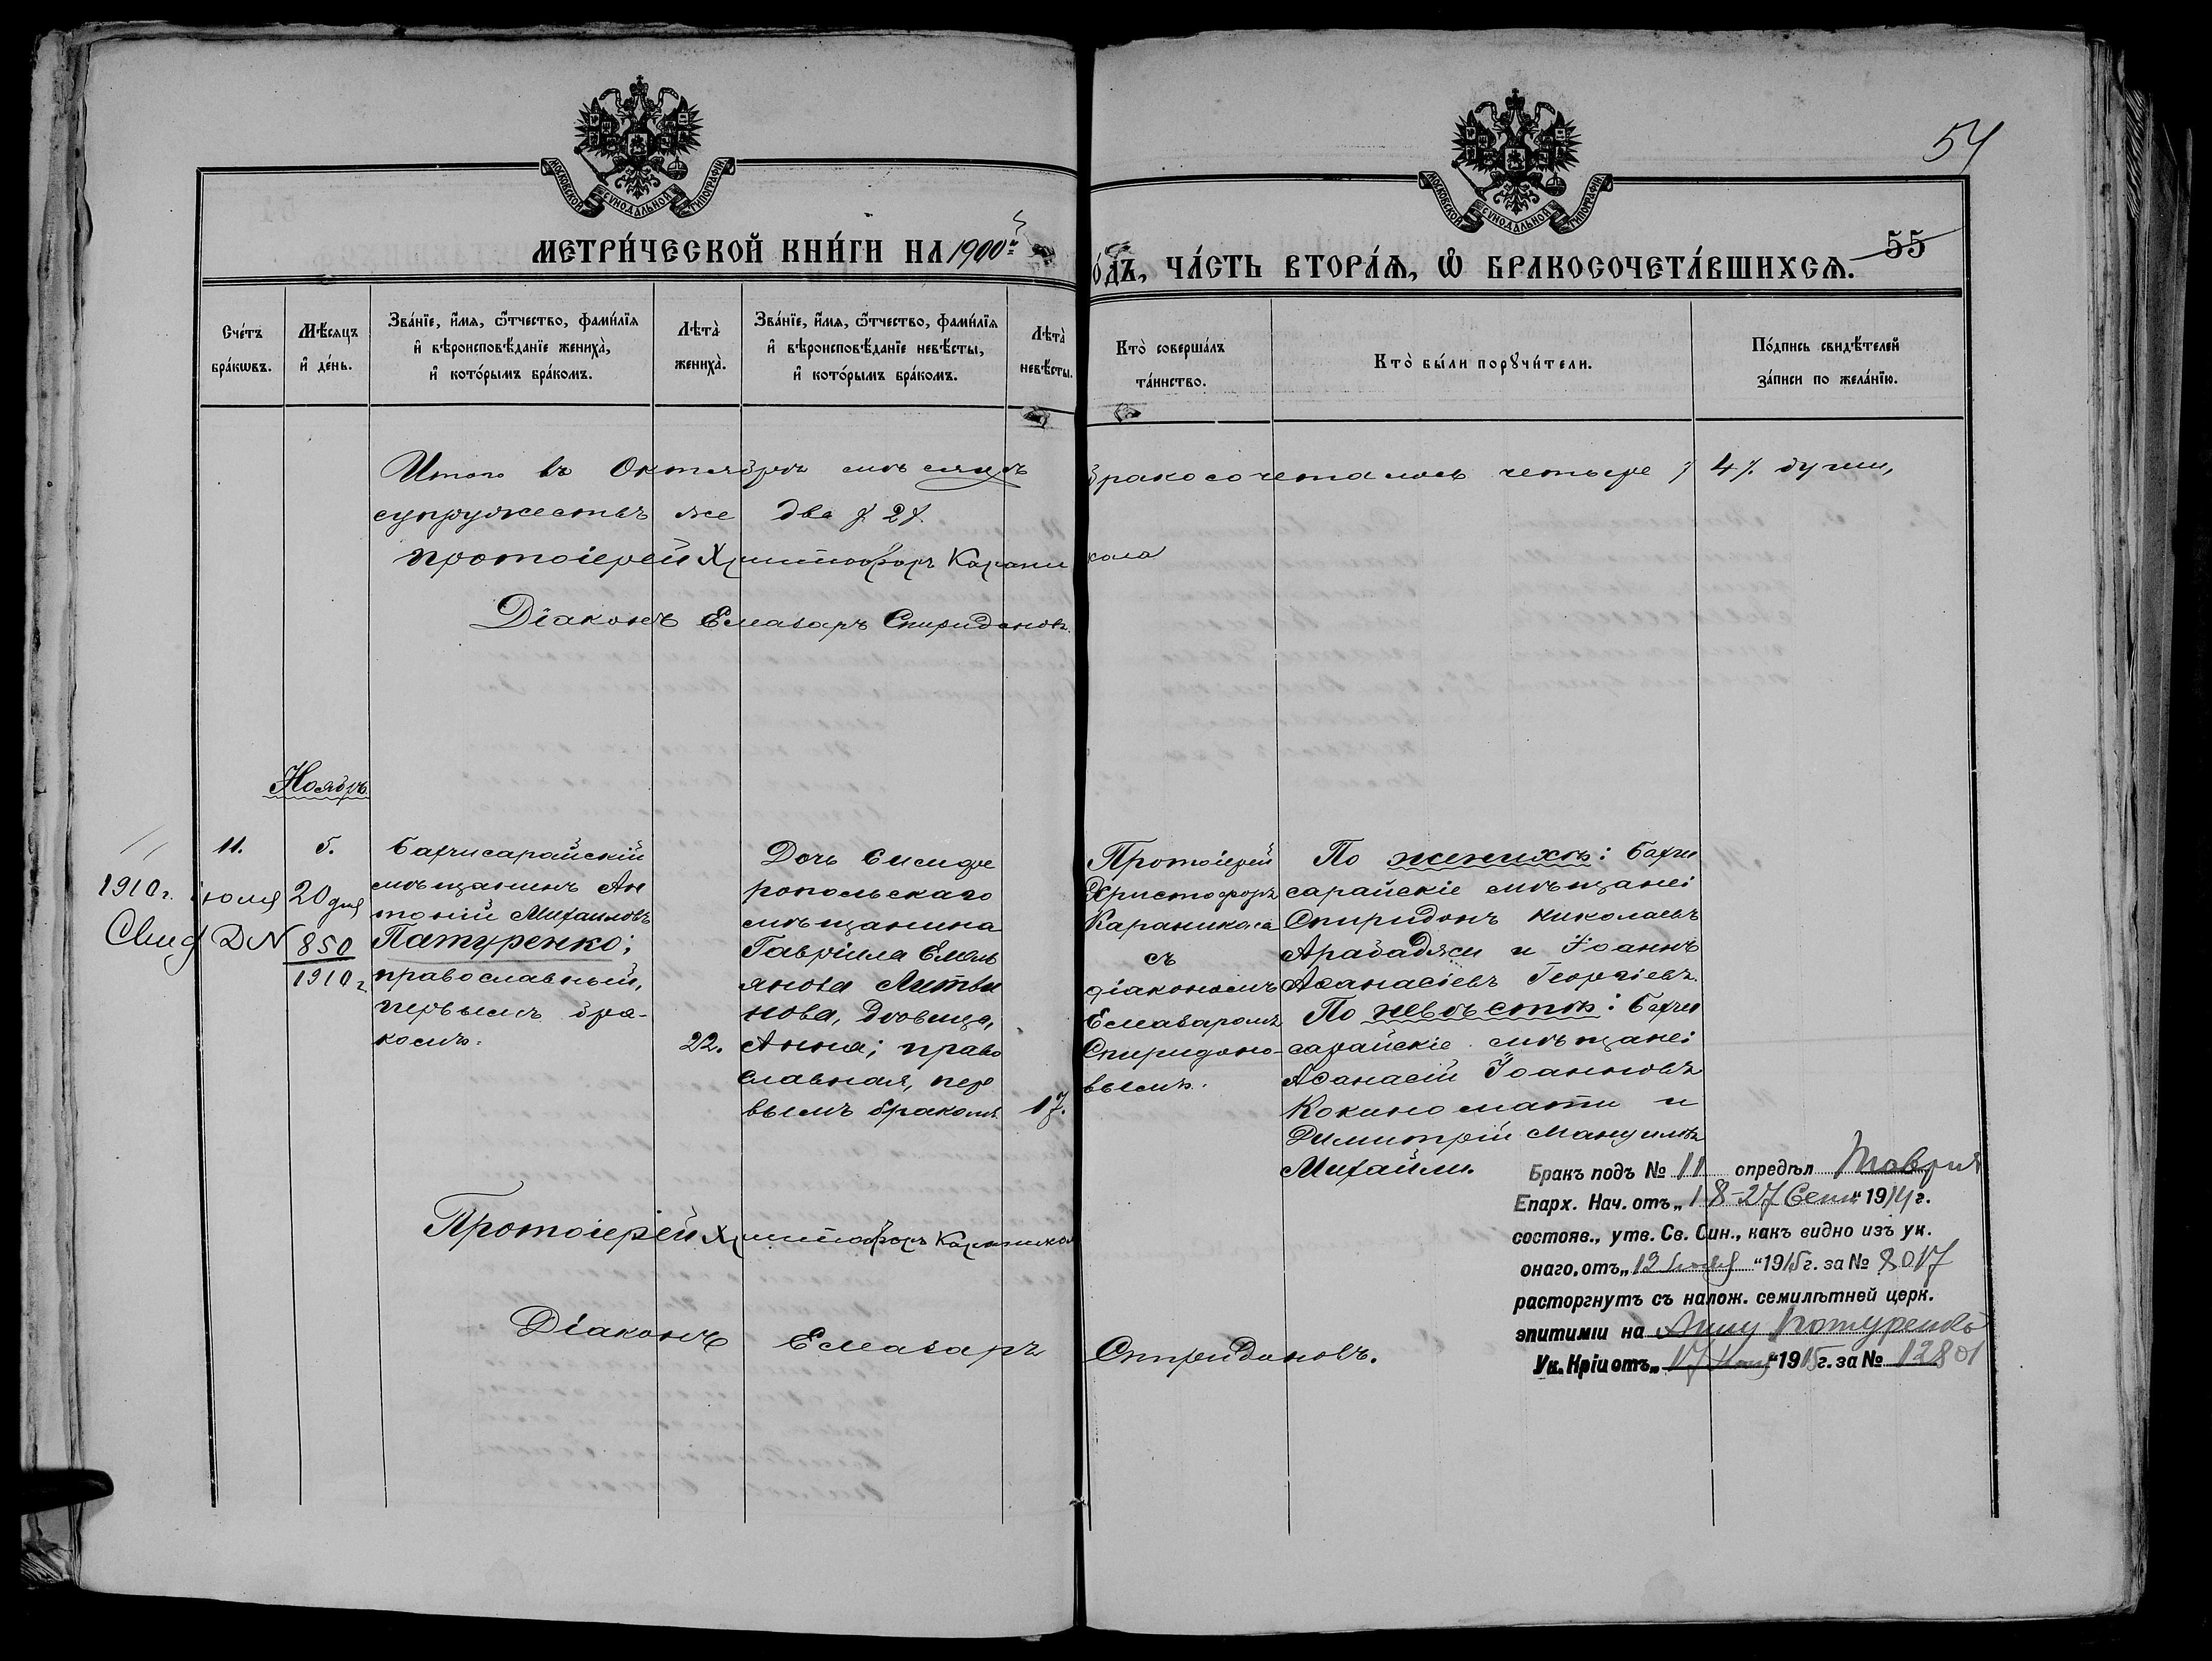 54
МОСКОВСКОЙ СѴНОДАЛЬНОЙ ТИПОГРАФІИ.
МОСКОВСКОЙ СѴНОДАЛЬНОЙ ТИПОГРАФІИ.
МЕТРИ́ЧЕСКОЙ КНИ́ГИ НА 1900й
О́ДЪ, ЧА́СТЬ ВТОРА́Я, Ѡ БРАКОСОЧЕТА́ВШИХСЯ. 55
Сче́тъ бра́кѡвъ.
Мѣ́сяцъ и҆ де́нь.
Зва́нїе, и҆́мя, ѻ҆́тчество, фами́лїя и҆ вѣроисповѣ́данїе жениха̀, и҆ кото́рымъ бра́комъ.
Лѣта̀ жениха̀.
Зва́нїе, и҆́мя, ѻ҆́тчество, фами́лїя и҆ вѣроисповѣ́данїе невѣ́сты, и҆ кото́рымъ бра́комъ.
Лѣта̀ невѣ́сты.
Кто̀ соверша́лъ та́инство.
Кто̀ бы́ли порꙋчи́тели.
По́дпись свидѣ́телей за́писи по жела́нїю.
Итого въ Октябрѣ мѣсяцѣ бракосочеталось четыре / 4 /. души,
супружествъ же два /. 2 /.
Протоіерей Христофоръ Караникола
Діаконъ Елеазаръ Спиридоновъ.
Ноябрь.
11.
5.
Бахчисарайскій
мѣщанинъ Ан
тоній Михаиловъ
Патуренко;
православный,
первымъ бра-
комъ.
22.
1910 г. іюля 20 дня
Свид. Д N 850
1910 г.
Дочь Симфе
ропольскаго
мѣщанина
Гавріила Емель
янова Литви
нова, Дѣвица,
Анна; право
славная, пер
вымъ бракомъ
17.
Протоіерей
Христофоръ
Караникола
съ
діакономъ
Елеазаромъ
Спиридоно-
вымъ.
По женихѣ: Бахчи
сарайскіе мѣщане:
Спиридонъ Николаевъ
Арабаджи и Іоаннъ
Аѳанасіевъ Георгіевъ.
По невѣстѣ: Бахчи
сарайскіе мѣщане:
Аѳанасій Іоанновъ
Кокиномати и
Димитрій Мануиловъ
Михайли.
Бракъ подъ № 11 опредѣл Таврич
Епарх. Нач. отъ „18-27 Сент“ 1914 г.
состояв., утв. Св. Син., какъ видно изъ ук.
онаго, отъ „12 “ 1915 г. за № 8017
расторгнутъ съ налож. семилѣтней церк.
эпитиміи на Анну Патуренко
Ук. Кріи отъ „17 “ 1915 г. за № 12801
Протоіерей Христофоръ Караникол
Діаконъ Елеазаръ Спиридоновъ.